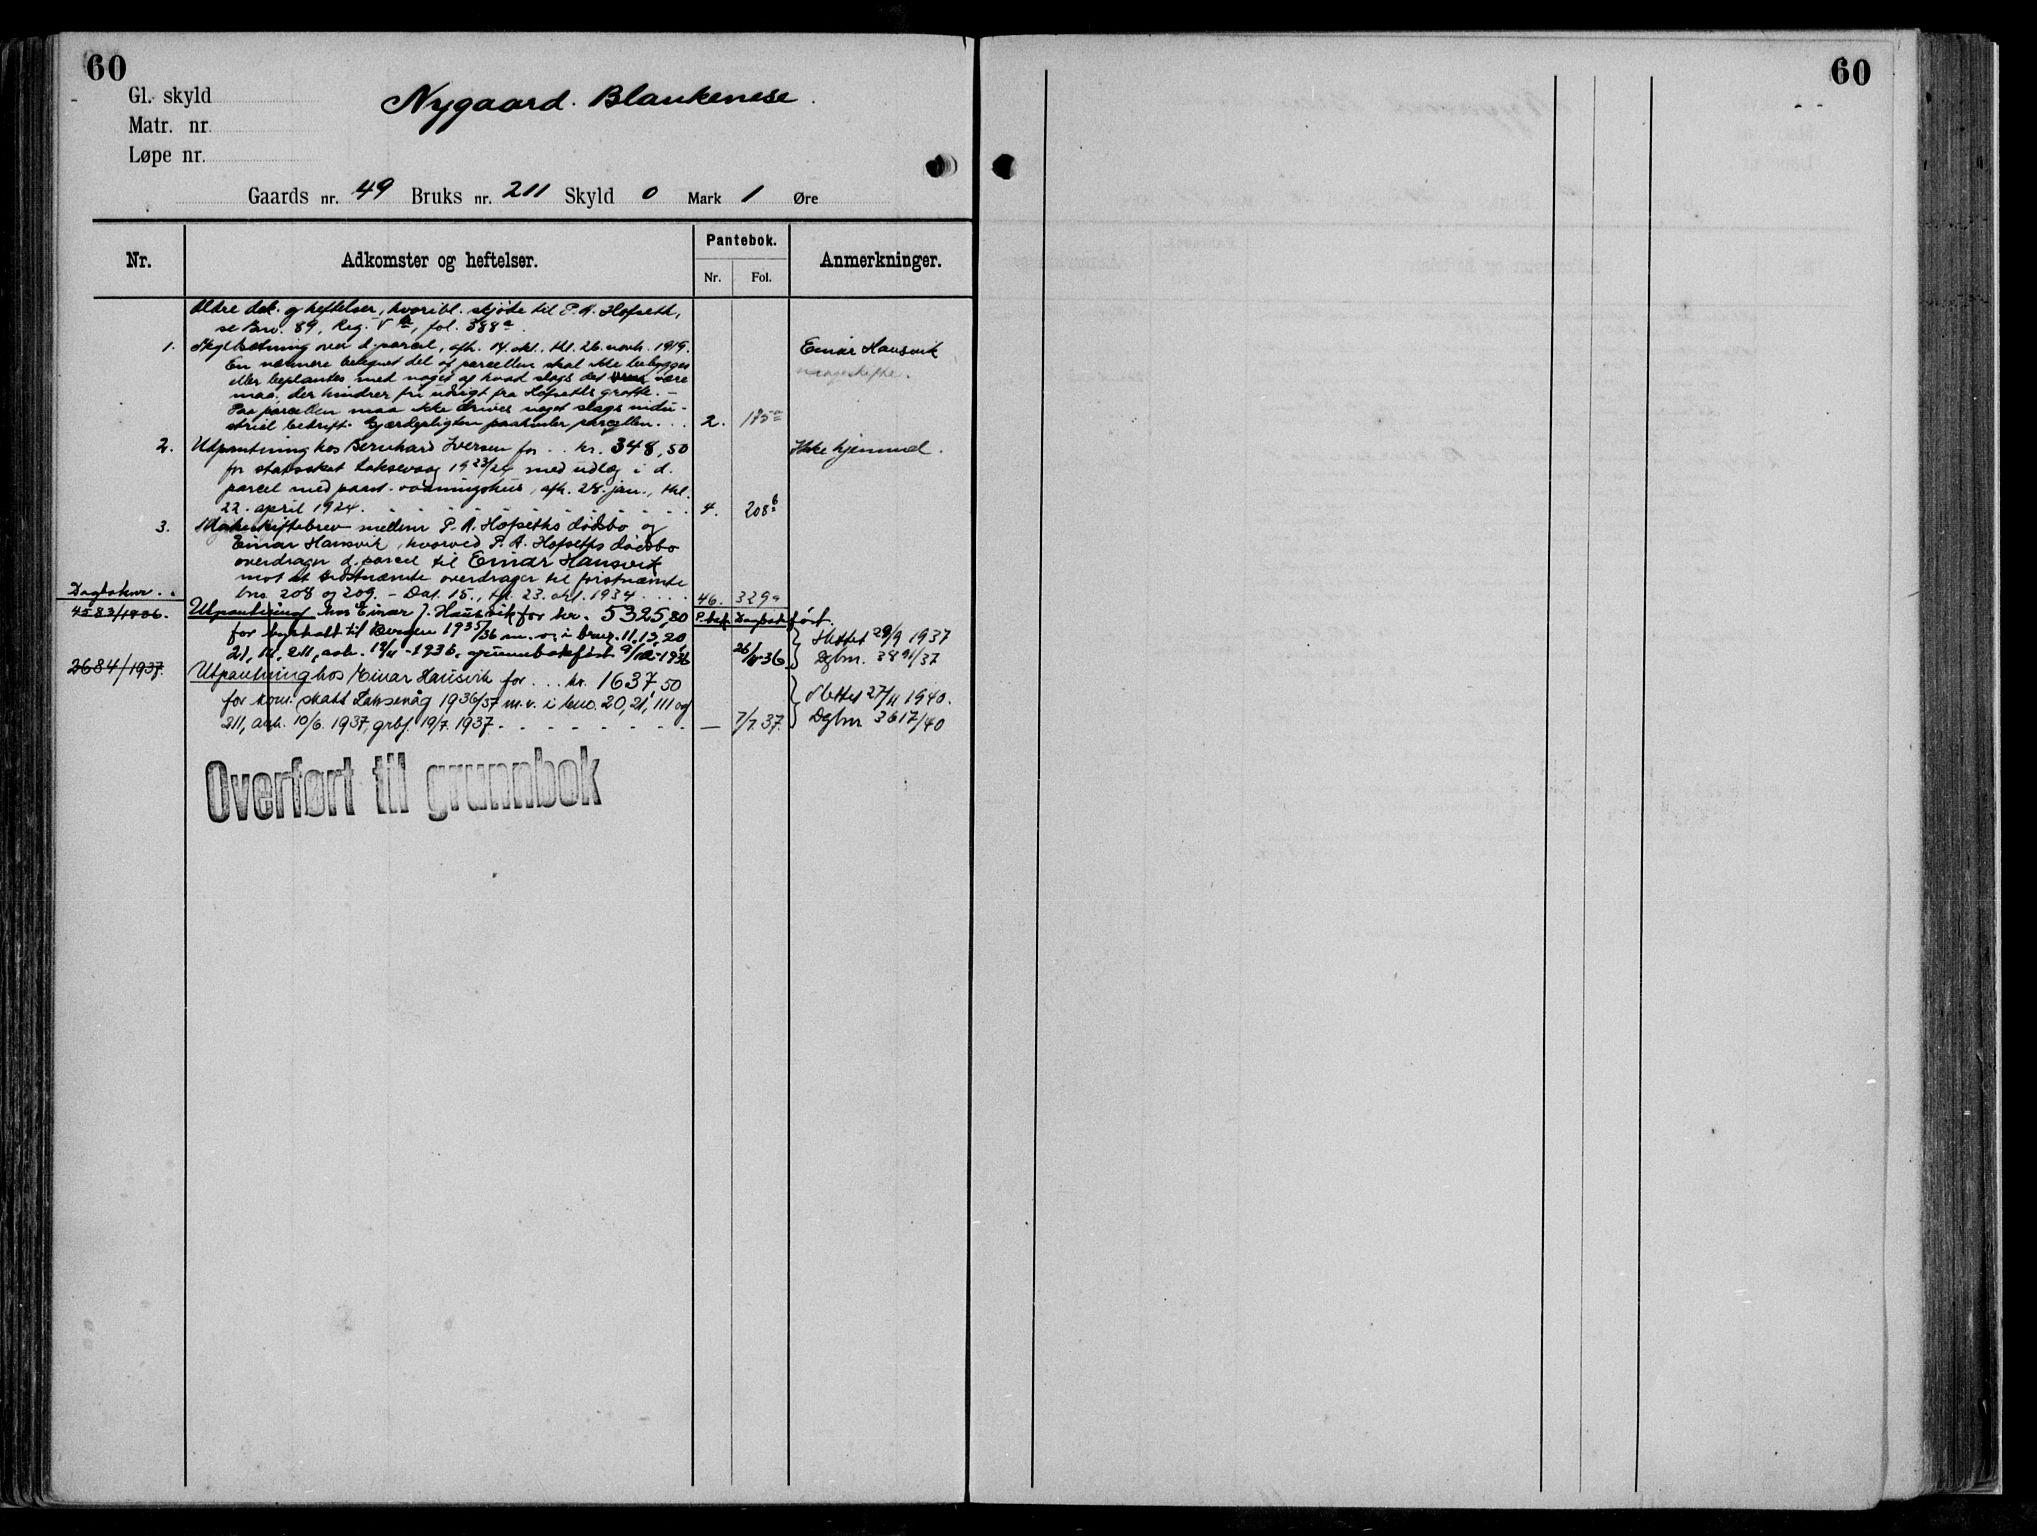 60
60
Gl. skyld
Nygaard. Blankenese.
Matr. nr.
Løpe nr.
Gaards nr. 49 Bruks nr. 211 Skyld 0 Mark 1 Øre
Nr.
Adkomster og heftelser.
Pantebok.
Nr. Fol.
Anmerkninger.
Ældre dok. og heftelser, hvoribl. skjøte til P. A. Hofseth,
se Brn. 89, Reg. V, fol. 388a.
1. Skyldsætning over d. parcel, afh. 14. okt., thl. 26. novb. 1919.
Einar Hansvik
En nærmere betegnet del af parcellen skal ikke bebygges
mageskifte.
eller beplantes med noget af hvad slags det være
maa, der hindrer fri udsigt fra Hofseths grotte. -
Paa parcellen maa ikke drives noget slags indu-
striel bedrift. Gjærdepligten paahviler parcellen. . . 2. 175a
2. Utpantning hos Bernhard Iversen for . . kr. 348,50
Ikke hjemmel.
for statsskat Laksevaag 1923/24 med udlæg i d.
parcel med paast. vaaningshus, afh. 28. jan., thl.
22. april 1924. 4. 208b
3. Mageskiftebrev mellem P. A. Hofseths dødsbo og
Einar Hansvik, hvorved P. A. Hofseths dødsbo
overdrager d. parcel til Einar Hansvik
mot at sidstnævnte overdrager til førstnævnte
bno. 208 og 209. - Dat. 15., thl. 23. okt. 1934 . . . . 46. 329a
Dagboknr.
4583/1936. Utpantning hos Einar J. Hansvik for kr. 5325,80
P.bok Dagbokført.
for byskatt til Bergen 1935/36 m. v. i bnr. 11, 13, 20,
21, 111, 211, avh. 19/11-1936, grunnbokført 9/12-1936 26/11-36
Slettet 29/9 1937
Dgbnr. 3891/37
2684/1937. Utpantning hos Einar Hansvik for . . . kr. 1637,50
for kom. skatt Laksevåg 1936/37 m.v. i bno. 20, 21, 111 og
211, avh. 10/6. 1937, grbf. 19/7. 1937. - 7/7.37.
Slettet 27/11 1940.
Dgbnr. 3617/40
Overført til grunnbok